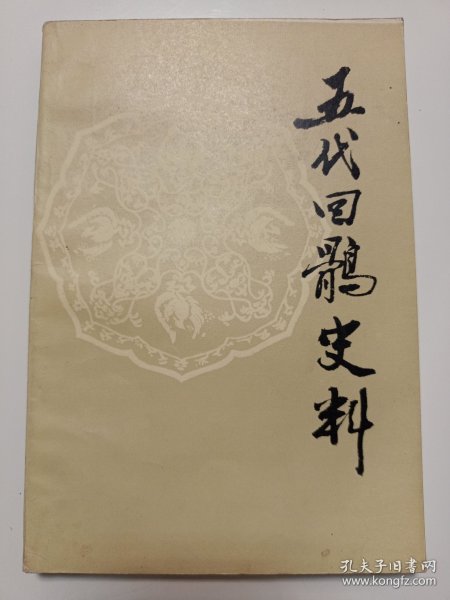 五代回鹘史料
孔夫子旧书网
www.kongfz.com